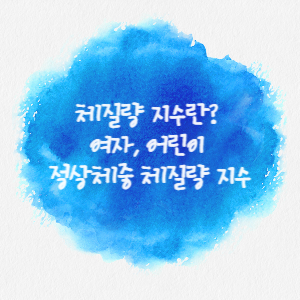 체질량 지수란?
여자, 어린이
정상체중 체질량 지수